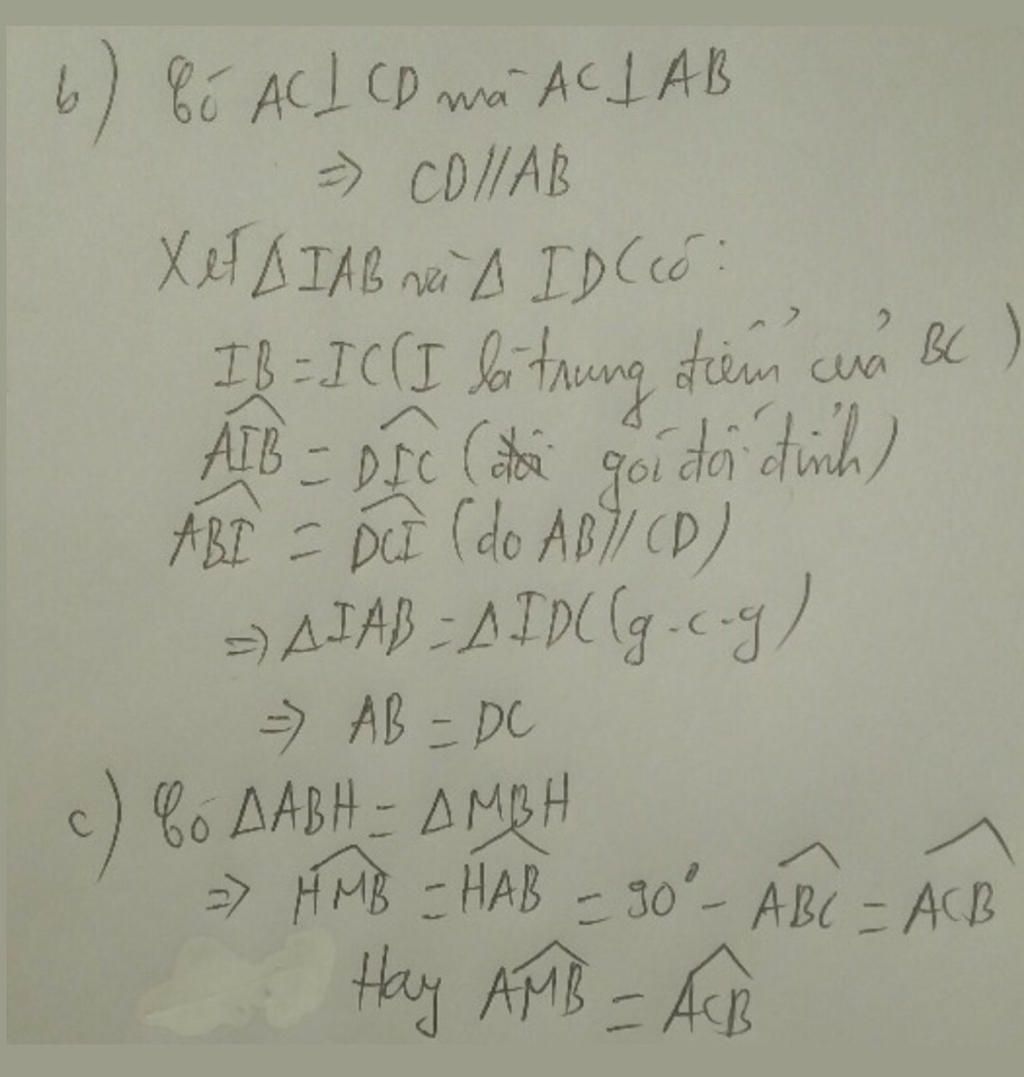 b) Có AC⊥CD mà AC⊥AB
⇒ CD//AB
Xét ΔIAB và ΔIDC có:
IB = IC (I là trung điểm của BC)
\widehat{AIB} = \widehat{DIC} (góc đối đỉnh)
\widehat{ABI} = \widehat{DCI} (do AB//CD)
⇒ ΔIAB = ΔIDC (g-c-g)
⇒ AB = DC
c) Có ΔABH = ΔMBH
⇒ \widehat{HMB} = \widehat{HAB} = 90° - \widehat{ABC} = \widehat{ACB}
Hay \widehat{AMB} = \widehat{ACB}